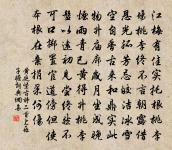 江梅有佳實託根桃李
場桃李終不言朝露借
恩光孤芳忌皎潔冰雪
空自香古來和鼎實此
物升廟廊歲月坐成晚
煙雨青已黃得升桃李
盤以遠初見嘗終然不
可口擲置官道傍但使
本根在棄捐果何傷
黃庭堅古詩二首上蘇
子瞻詞典網